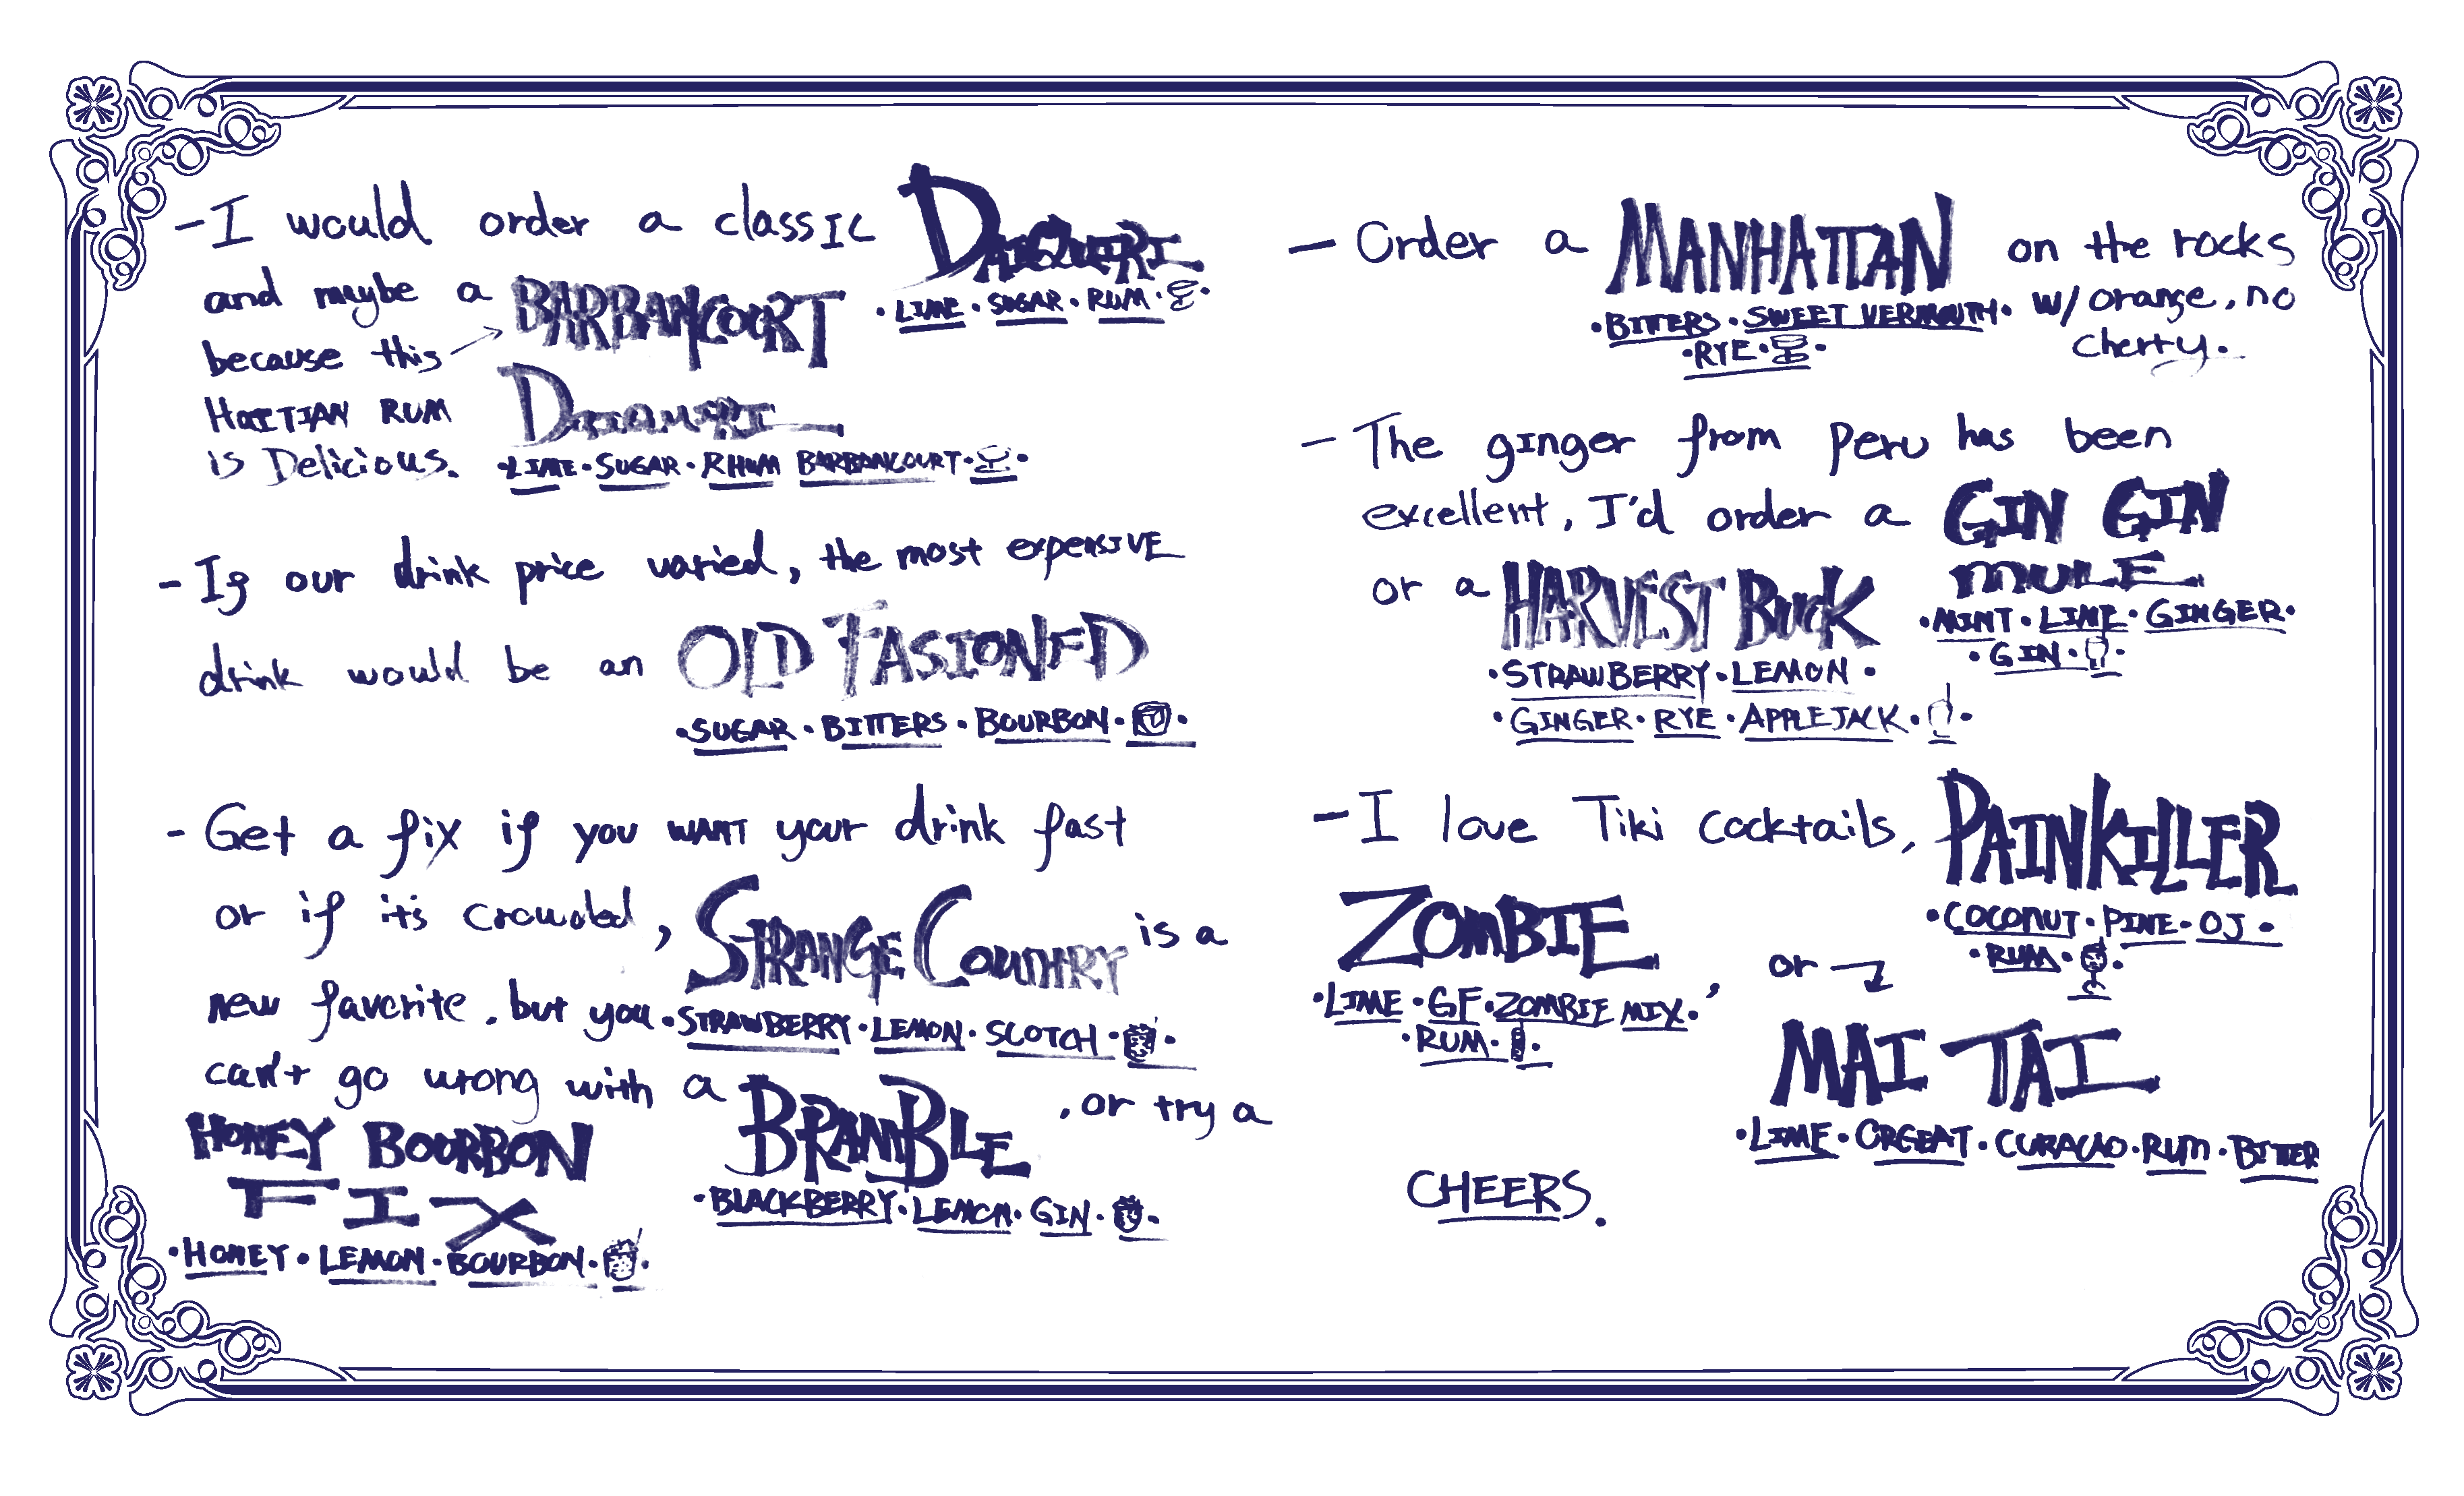 - I would order a classic DAIQUIRI
· LIME · SUGAR · RUM ·
and maybe a BARBANCOURT
because this → DAIQUIRI
HAITIAN RUM
is Delicious. · LIME · SUGAR · RHUM BARBANCOURT ·
- If our drink price varied, the most expensive
drink would be an OLD FASIONED
· SUGAR · BITTERS · BOURBON ·
- Get a fix if you want your drink fast
or if its crowded, STRANGE COUNTRY is a
new favorite, but you · STRAWBERRY · LEMON · SCOTCH ·
can't go wrong with a BRAMBLE, or try a
· BLACKBERRY · LEMON · GIN ·
HONEY BOURBON
FIX
· HONEY · LEMON · BOURBON ·
- Order a MANHATTAN on the rocks
· BITTERS · SWEET VERMOUTH · w/ orange, no
· RYE · cherry.
- The ginger from Peru has been
excellent, I'd order a GIN GIN
MULE
· MINT · LIME · GINGER ·
· GIN ·
or a HARVEST BUCK
· STRAWBERRY · LEMON ·
· GINGER · RYE · APPLEJACK ·
- I love Tiki cocktails, PAINKILLER
· COCONUT · PINE · OJ ·
· RUM ·
ZOMBIE, or
· LIME · GF · ZOMBIE MIX ·
· RUM ·
MAI TAI
· LIME · ORGEAT · CURACAO · RUM · BITTER
CHEERS.